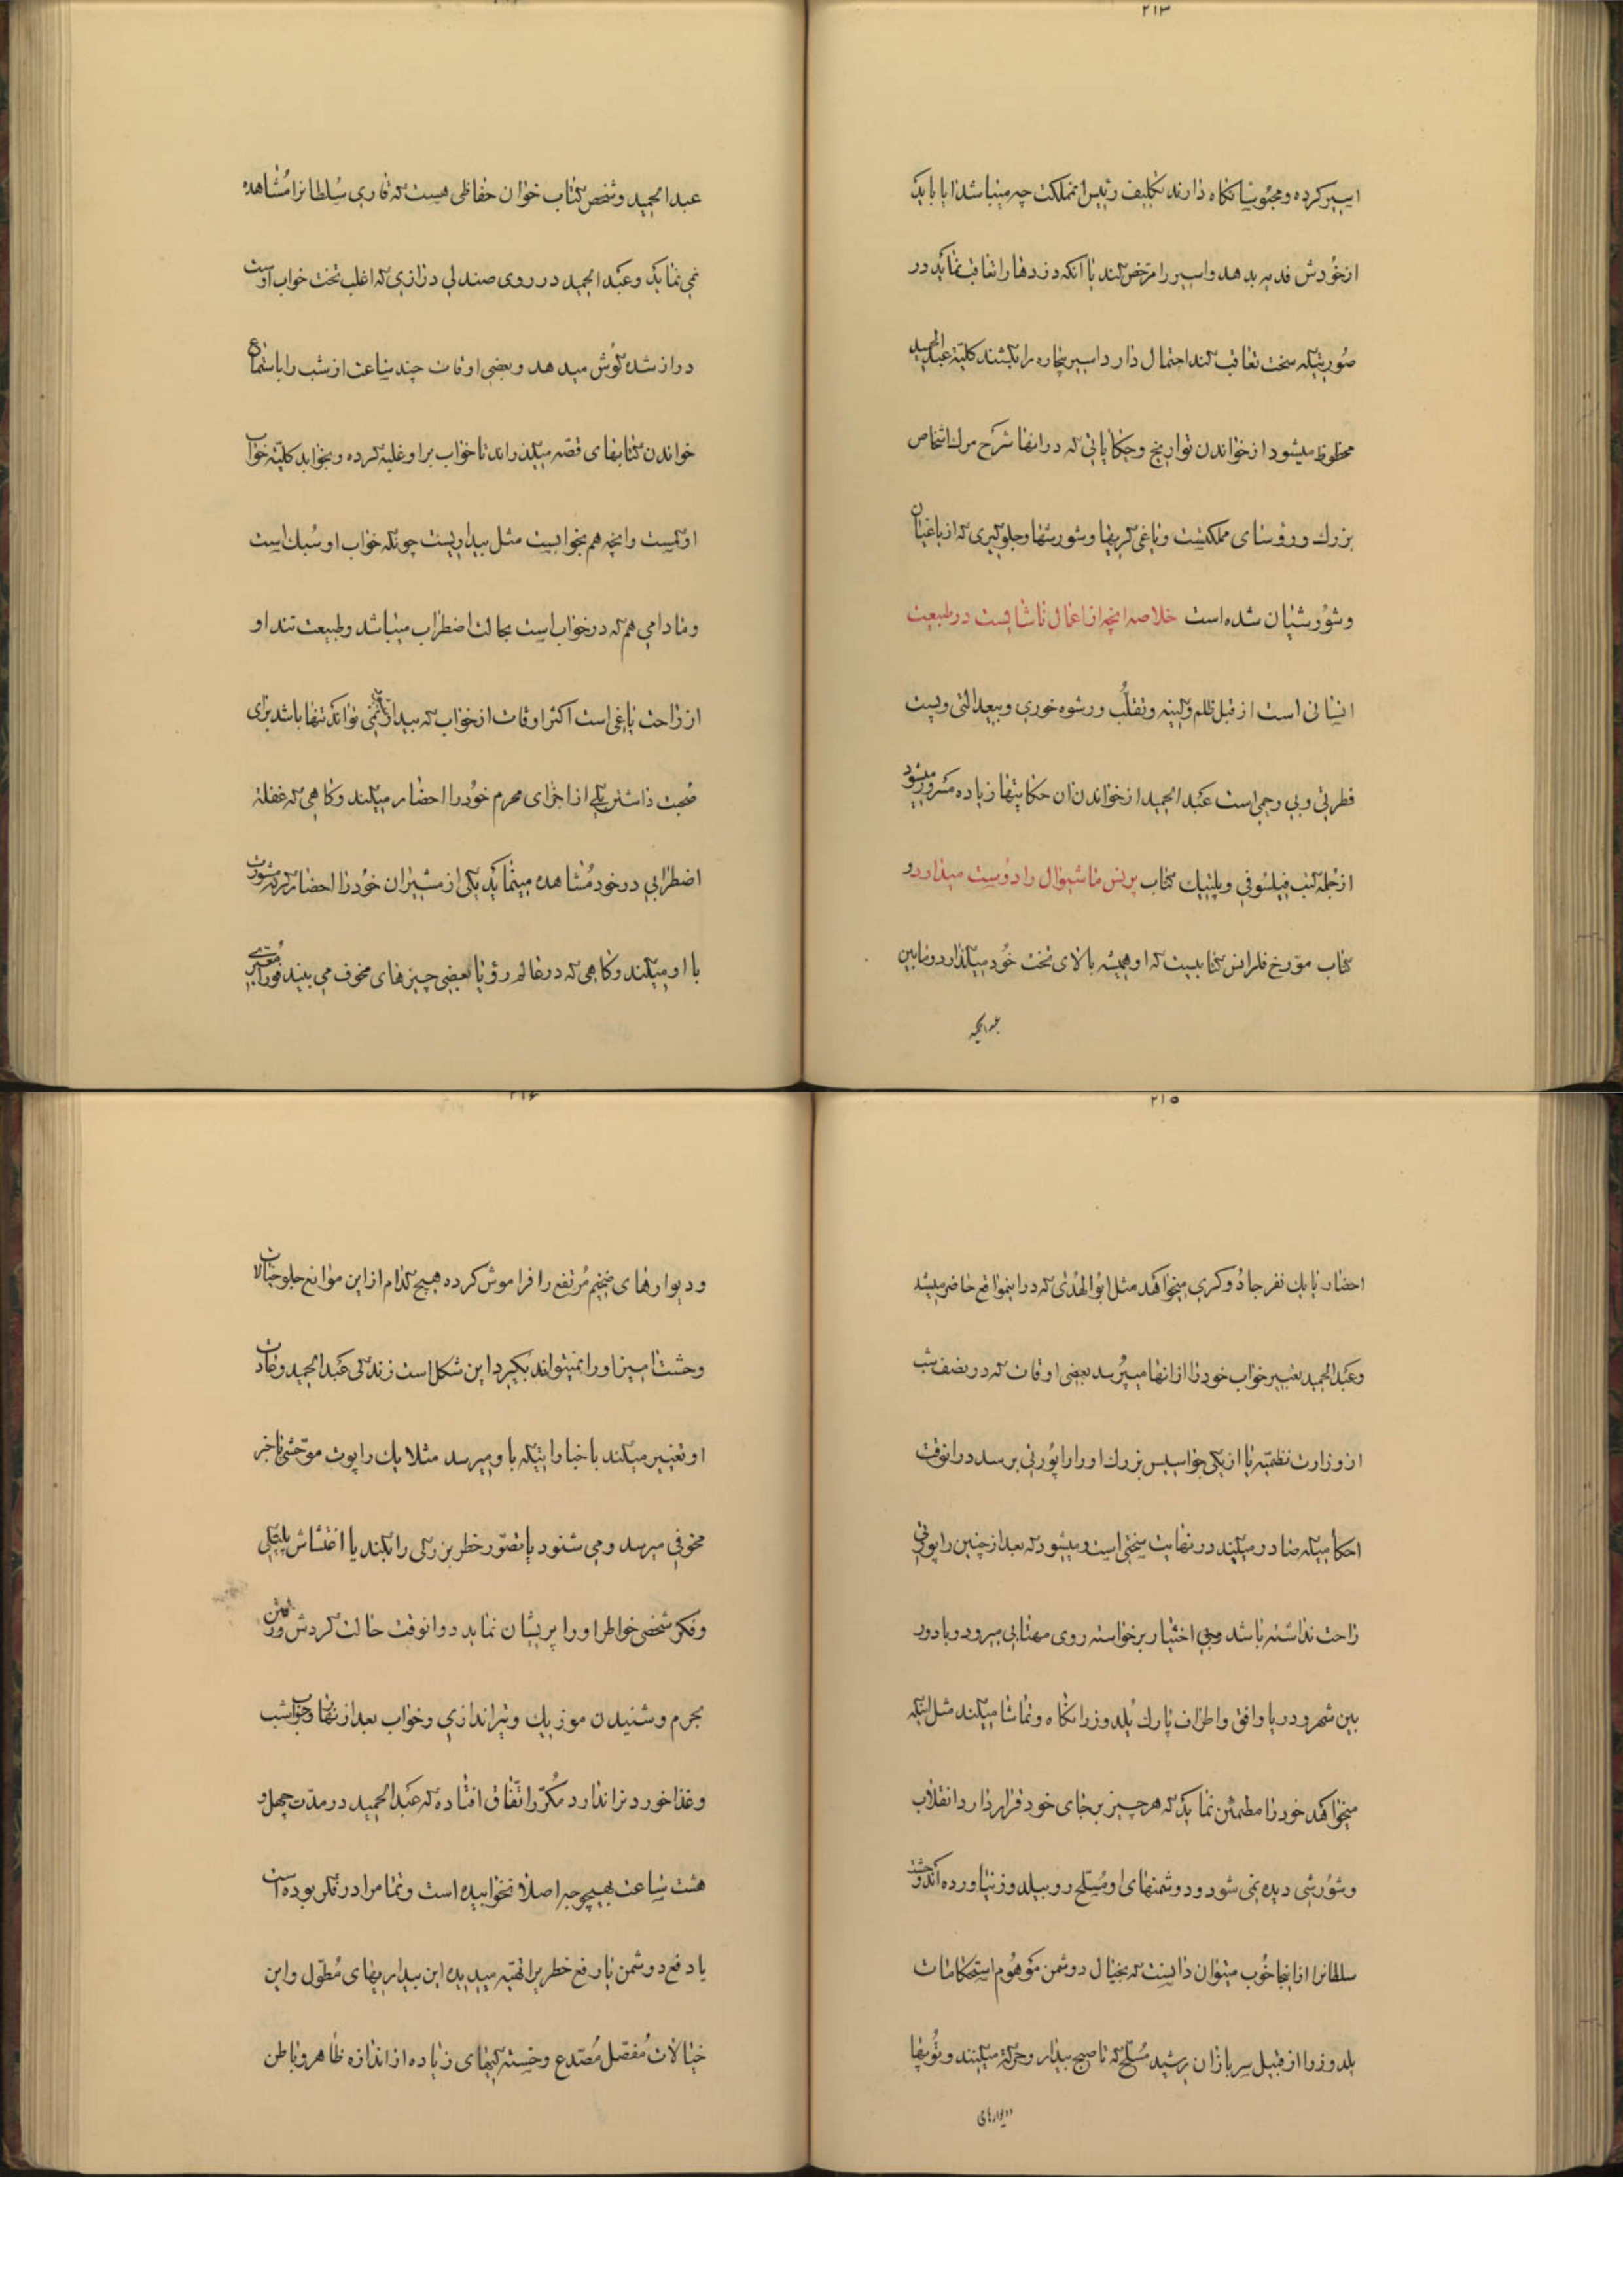 ۲۱۳
اسیر کرده و محبوسا نگاه دارند تکلیف رئیس انمملکت چه میباشد ایا باید
از خودش فدیه بدهد و اسیر را مرخص کند یا آنکه دزدها را تعاقب نماید در
صورتیکه سخت تعاقب کند احتمال دارد اسیر بیچاره را بکشند کلیّة عبدالحمید
محظوظ میشود از خواندن تواریخ و حکایاتی که در انها شرح مرک اشخاص
بزرك و رؤسای مملکتست و یاغی کریها و شورشها و جلوکیری که از یاغیان
و شورشیان شده است خلاصه انچه از اعمال ناشایست در طبیعت
انسانی است از قبل ظلم و کینه و تقلّب و رشوه خوری و بیعدالتی و پست
فطرتی و بی رحمی است عبدالحمید از خواندن ان حکایتها زیاده مسرور میشود
از جمله کتب فیلسوفی و پلتیك کتاب پرنس ماشیوال را دوست میدارد و
کتاب مورخ فلرانس کتابیست که او همیشه بالای تخت خود میکذارد و مابین
عبدالحمید
عبدالحمید و شخص کتاب خوان حفاظی هست که قاری سلطانرا مشاهده
نمی نماید و عبدالحمید در روی صندلی درازی که اغلب تخت خواب اوست
دراز شده کوش میدهد و بعضی اوقات چند ساعت از شب را باستماع
خواندن کتابهای قصه میکذراند تا خواب بر او غلبه کرده و بخوابد کلیّة خواب
او کمست و انچه هم بخوابست مثل بیداریست چونکه خواب او سبك است
و مادامی هم که در خواب است بحالت اضطراب میباشد و طبیعت تند او
از راحت یاغی است اکثر اوقات از خواب که بیدار نمی تواند تنها باشد برای
صحبت داشتن یکی از اجزای محرم خود را احضار میکند و کاهی که غفلة
اضطرابی در خود مشاهده مینماید یکی از مشیران خود را احضار کرده مشورت
با او میکند و کاهی که در عالم رؤیا بعضی چیزهای مخوف می بیند فورا معبری
۲۱۵
احضار یا یك نفر جادوکری میخواهد مثل ابوالهدی که در اینمواقع حاضر میشد
و عبدالحمید تعبیر خواب خود را از انها میپرسد بعضی اوقات که در نصف شب
از وزارت نظمیّه یا از یکی جواسیس بزرك او را راپورتی برسد در انوقت
احکامیکه صادر میکند در نهایت سختی است و میشود که بعد از چنین راپورتی
راحت نداشته باشد و بی اختیار برخواسته روی مهتابی میرود و با دور
بین شهر و دریا و افق و اطراف پارك یلدوز را نگاه و تماشا میکند مثل اینکه
میخواهد خود را مطمئن نماید که هر چیز بر جای خود قرار دارد انقلاب
و شورشی دیده نمی شود و دشمنهای او مسلح رو بیلدوز نیاورده اند وحشت
سلطانرا از اینجا خوب میتوان دانست که بخیال دوشمن موهوم استحکامات
یلدوز را از قبیل سربازان رشید مسلح که تا صبح بیدار و حرکت میکنند و توپها
و دیوارهای
۲۱۶
و دیوارهای ضخیم مرتفع را فراموش کرده هیچ کدام از این موانع جلو خیالات
وحشت امیز او را نمیتواند بکیرد این شکل است زندکی عبدالحمید و عادات
او تغییر میکند باخباراتیکه باو میرسد مثلا یك راپورت موحّشی یا خبر
مخوفی میرسد و می شنود یا تصوّر خطر بزرکی را بکند یا اغتشاش پلتیکی
و فکر شخصی خواطر او را پریشان نماید در انوقت حالت کردش و رفتن
بحرم و شنیدن موزیك و تیراندازی و خواب بعد از نهار و خواب شب
و غذا خوردنرا ندارد مکرّر اتفاق افتاده که عبدالحمید در مدّت چهل و
هشت ساعت بهیچوجه اصلا نخوابیده است و تماما در فکر بوده است
یا دفع دوشمن یا رفع خطر را تهیّه میدیده این بیداریهای مطوّل و این
خیالات مفصل مصدع و خسته کیهای زیاده از اندازه ظاهر و باطن